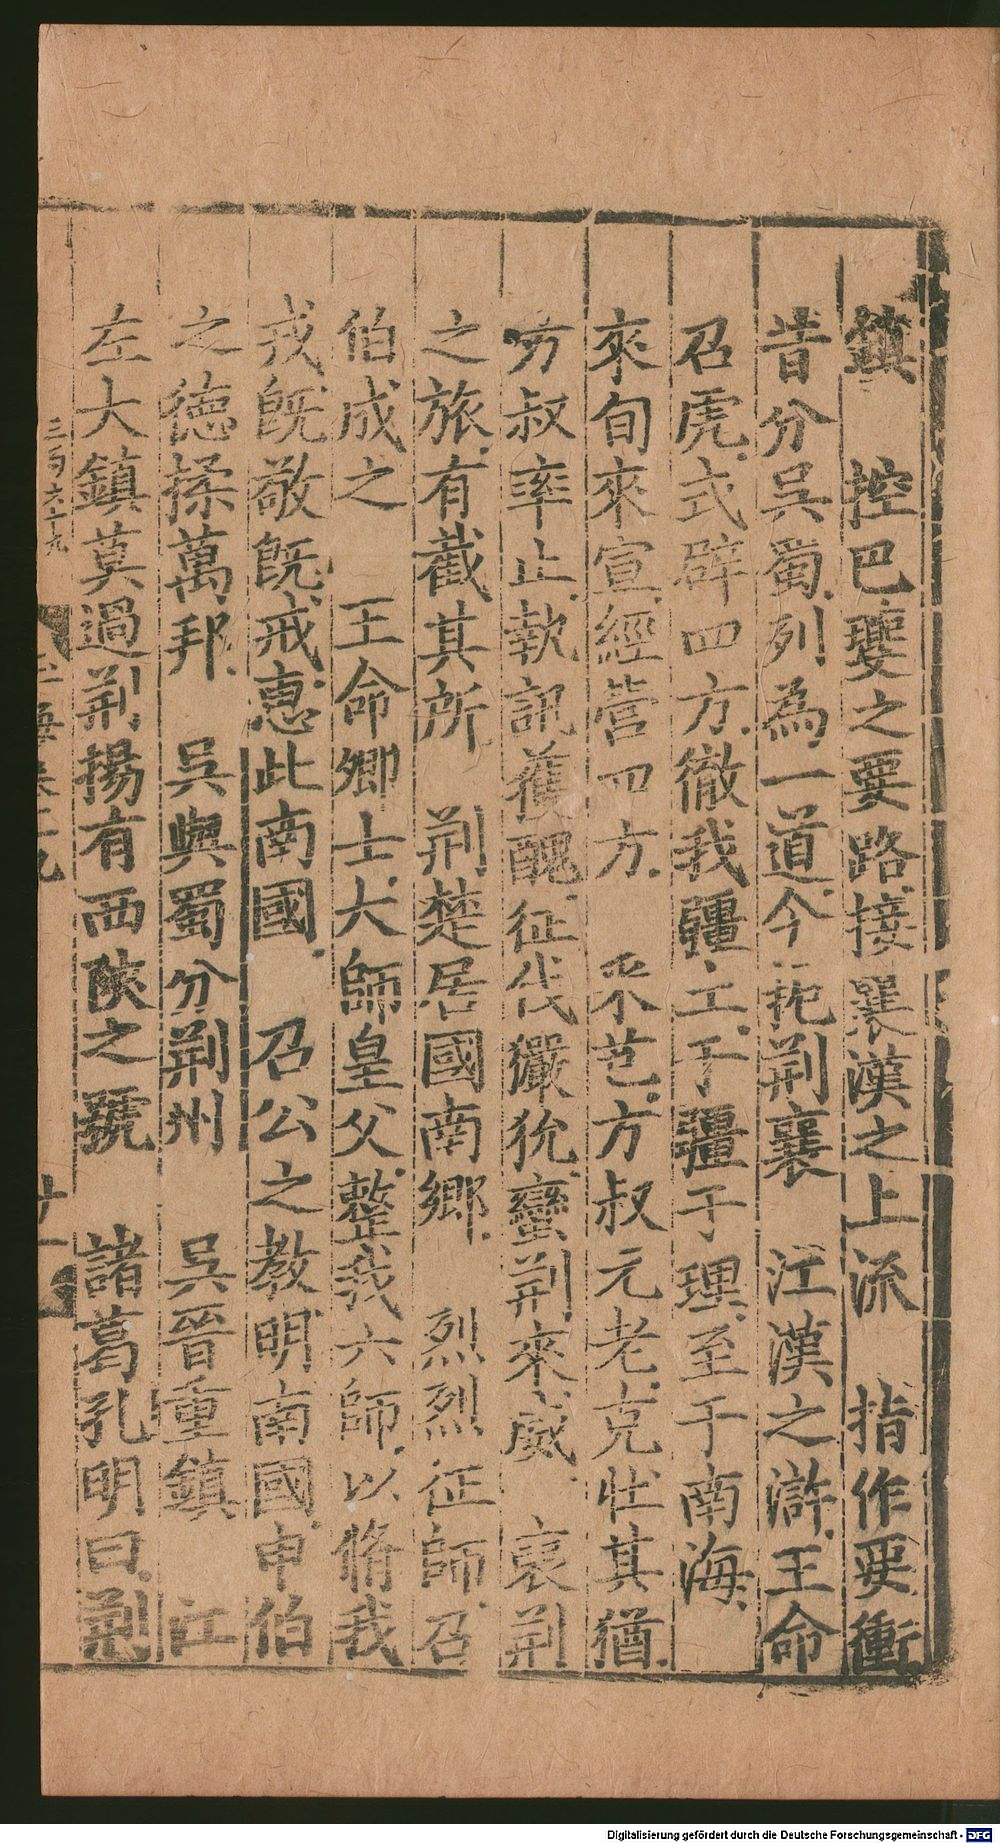 鎮　控巴夔之要路接襄漢之上流　指作要衝
昔分吳蜀列為一道今扼荆襄　江漢之滸王命
召虎式辟四方徹我疆土于疆于理至于南海
來旬來宣經營四方　采芑方叔元老克壯其猶
方叔率止執訊獲醜征伐玁狁蠻荆來威　裒荆
之旅有截其所　荆楚居國南鄉　烈烈征師召
伯成之　王命卿士大師皇父整我六師以脩我
戎既敬既戒惠此南國　召公之教明南國申伯
之德揉萬邦　吳與蜀分荆州　吳晉重鎮　江
左大鎮莫過荆揚有西陝之號　諸葛孔明曰荆
三百六十九
玉海卷十九
廿一
Digitalisierung gefördert durch die Deutsche Forschungsgemeinschaft - DFG